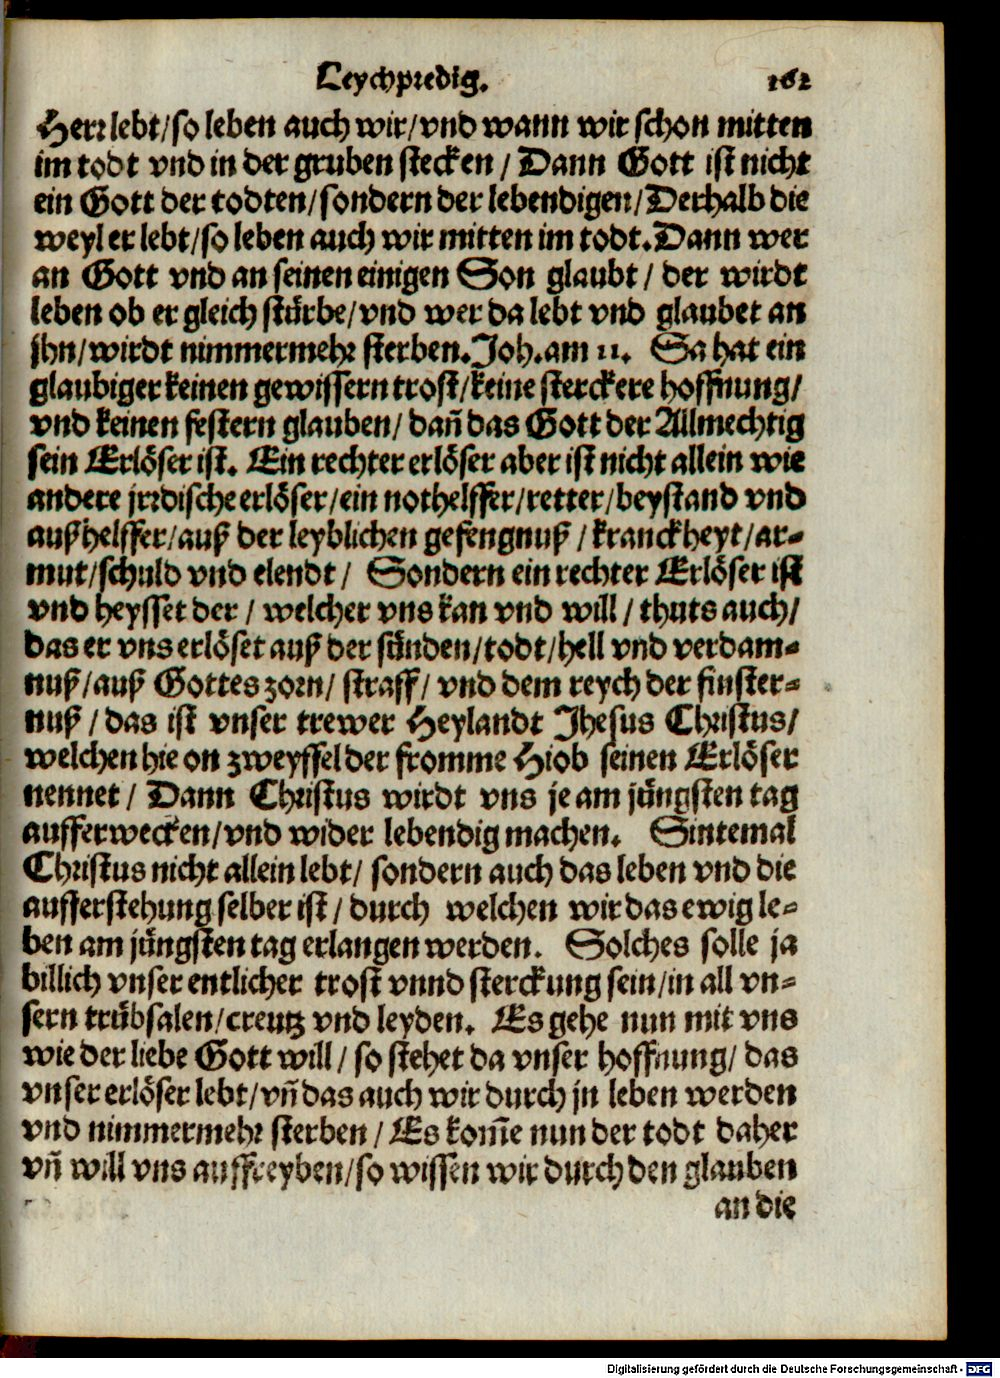 Leychpredig. 162
Herr lebt/so leben auch wir/vnd wann wir schon mitten
im todt vnd in der gruben stecken / Dann Gott ist nicht
ein Gott der todten/sondern der lebendigen/Derhalb die
weyl er lebt/so leben auch wir mitten im todt.Dann wer
an Gott vnd an seinen einigen Son glaubt / der wirdt
leben ob er gleich stürbe/vnd wer da lebt vnd glaubet an
jhn/wirdt nimmermehr sterben.Joh.am 11. Sa hat ein
glaubiger keinen gewissern trost/keine sterckere hoffnung/
vnd keinen festern glauben/ dañ das Gott der Allmechtig
sein Erlöser ist. Ein rechter erlöser aber ist nicht allein wie
andere jrrdische erlöser/ein nothelffer/retter/beystand vnd
außhelffer/auß der leyblichen gefengnuß / kranckheyt/ar-
mut/schuld vnd elendt / Sondern ein rechter Erlöser ist
vnd heysset der / welcher vns kan vnd will / thuts auch/
das er vns erlöset auß der sünden/todt/hell vnd verdam-
nuß/auß Gottes zorn/ straff/ vnd dem reych der finster-
nuß / das ist vnser trewer Heylandt Jhesus Christus/
welchen hie on zweyffel der fromme Hiob seinen Erlöser
nennet / Dann Christus wirdt vns je am jüngsten tag
aufferwecken/vnd wider lebendig machen. Sintemal
Christus nicht allein lebt/ sondern auch das leben vnd die
aufferstehung selber ist / durch welchen wir das ewig le-
ben am jüngsten tag erlangen werden. Solches solle ja
billich vnser entlicher trost vnnd sterckung sein/in all vn-
sern trübsalen/creutz vnd leyden. Es gehe nun mit vns
wie der liebe Gott will / so stehet da vnser hoffnung/ das
vnser erlöser lebt/vñ das auch wir durch jn leben werden
vnd nimmermehr sterben / Es kom̃e nun der todt daher
vñ will vns auffreyben/so wissen wir durch den glauben
an die
Digitalisierung gefördert durch die Deutsche Forschungsgemeinschaft - DFG